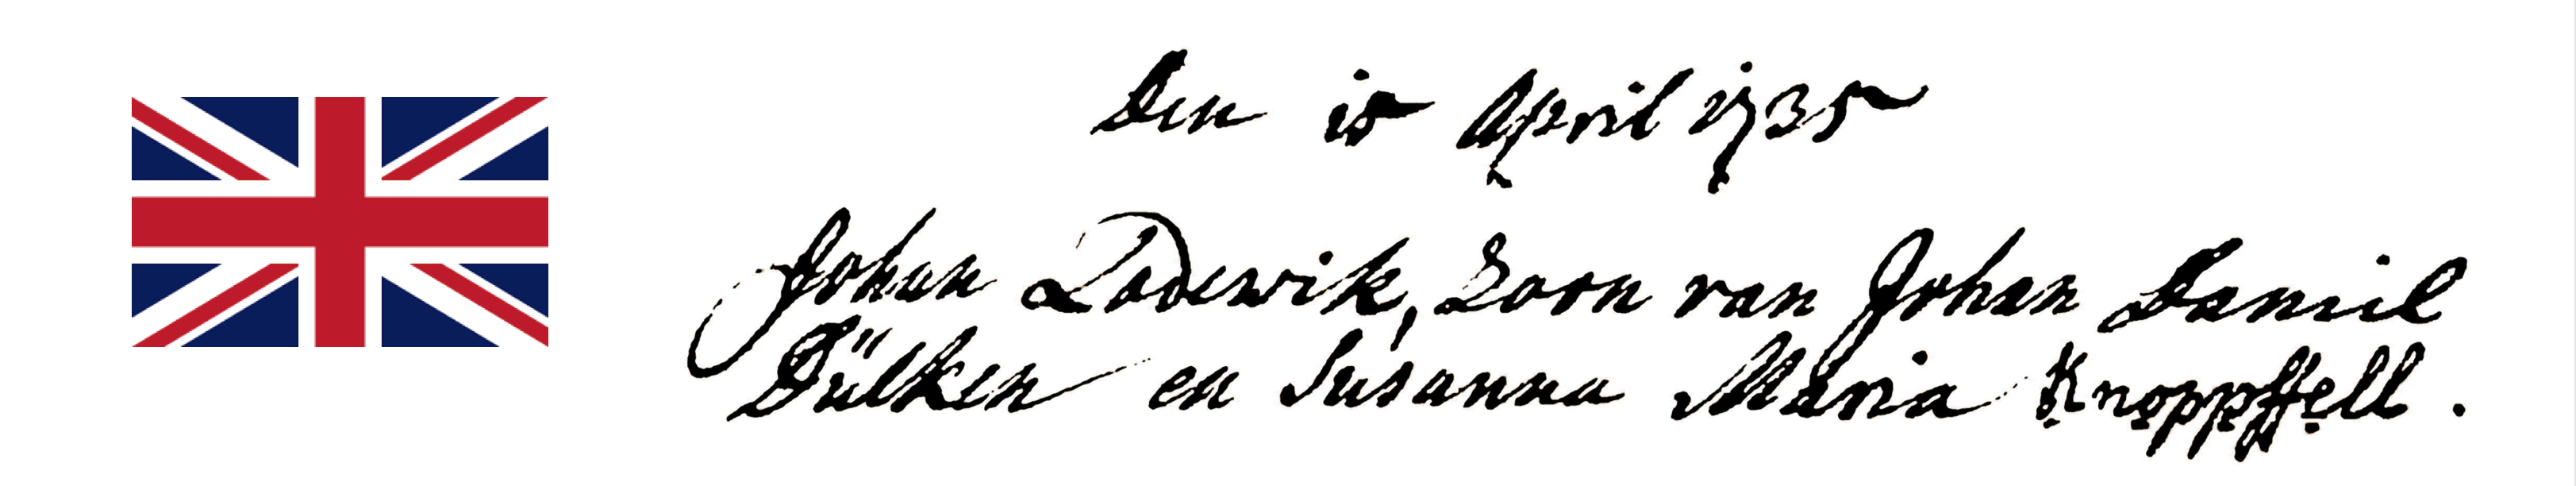 Den 15 April 1735
Johan Lodewik, Zoon van Johan Daniel
Dülken en Susanna Maria Knoppffell.